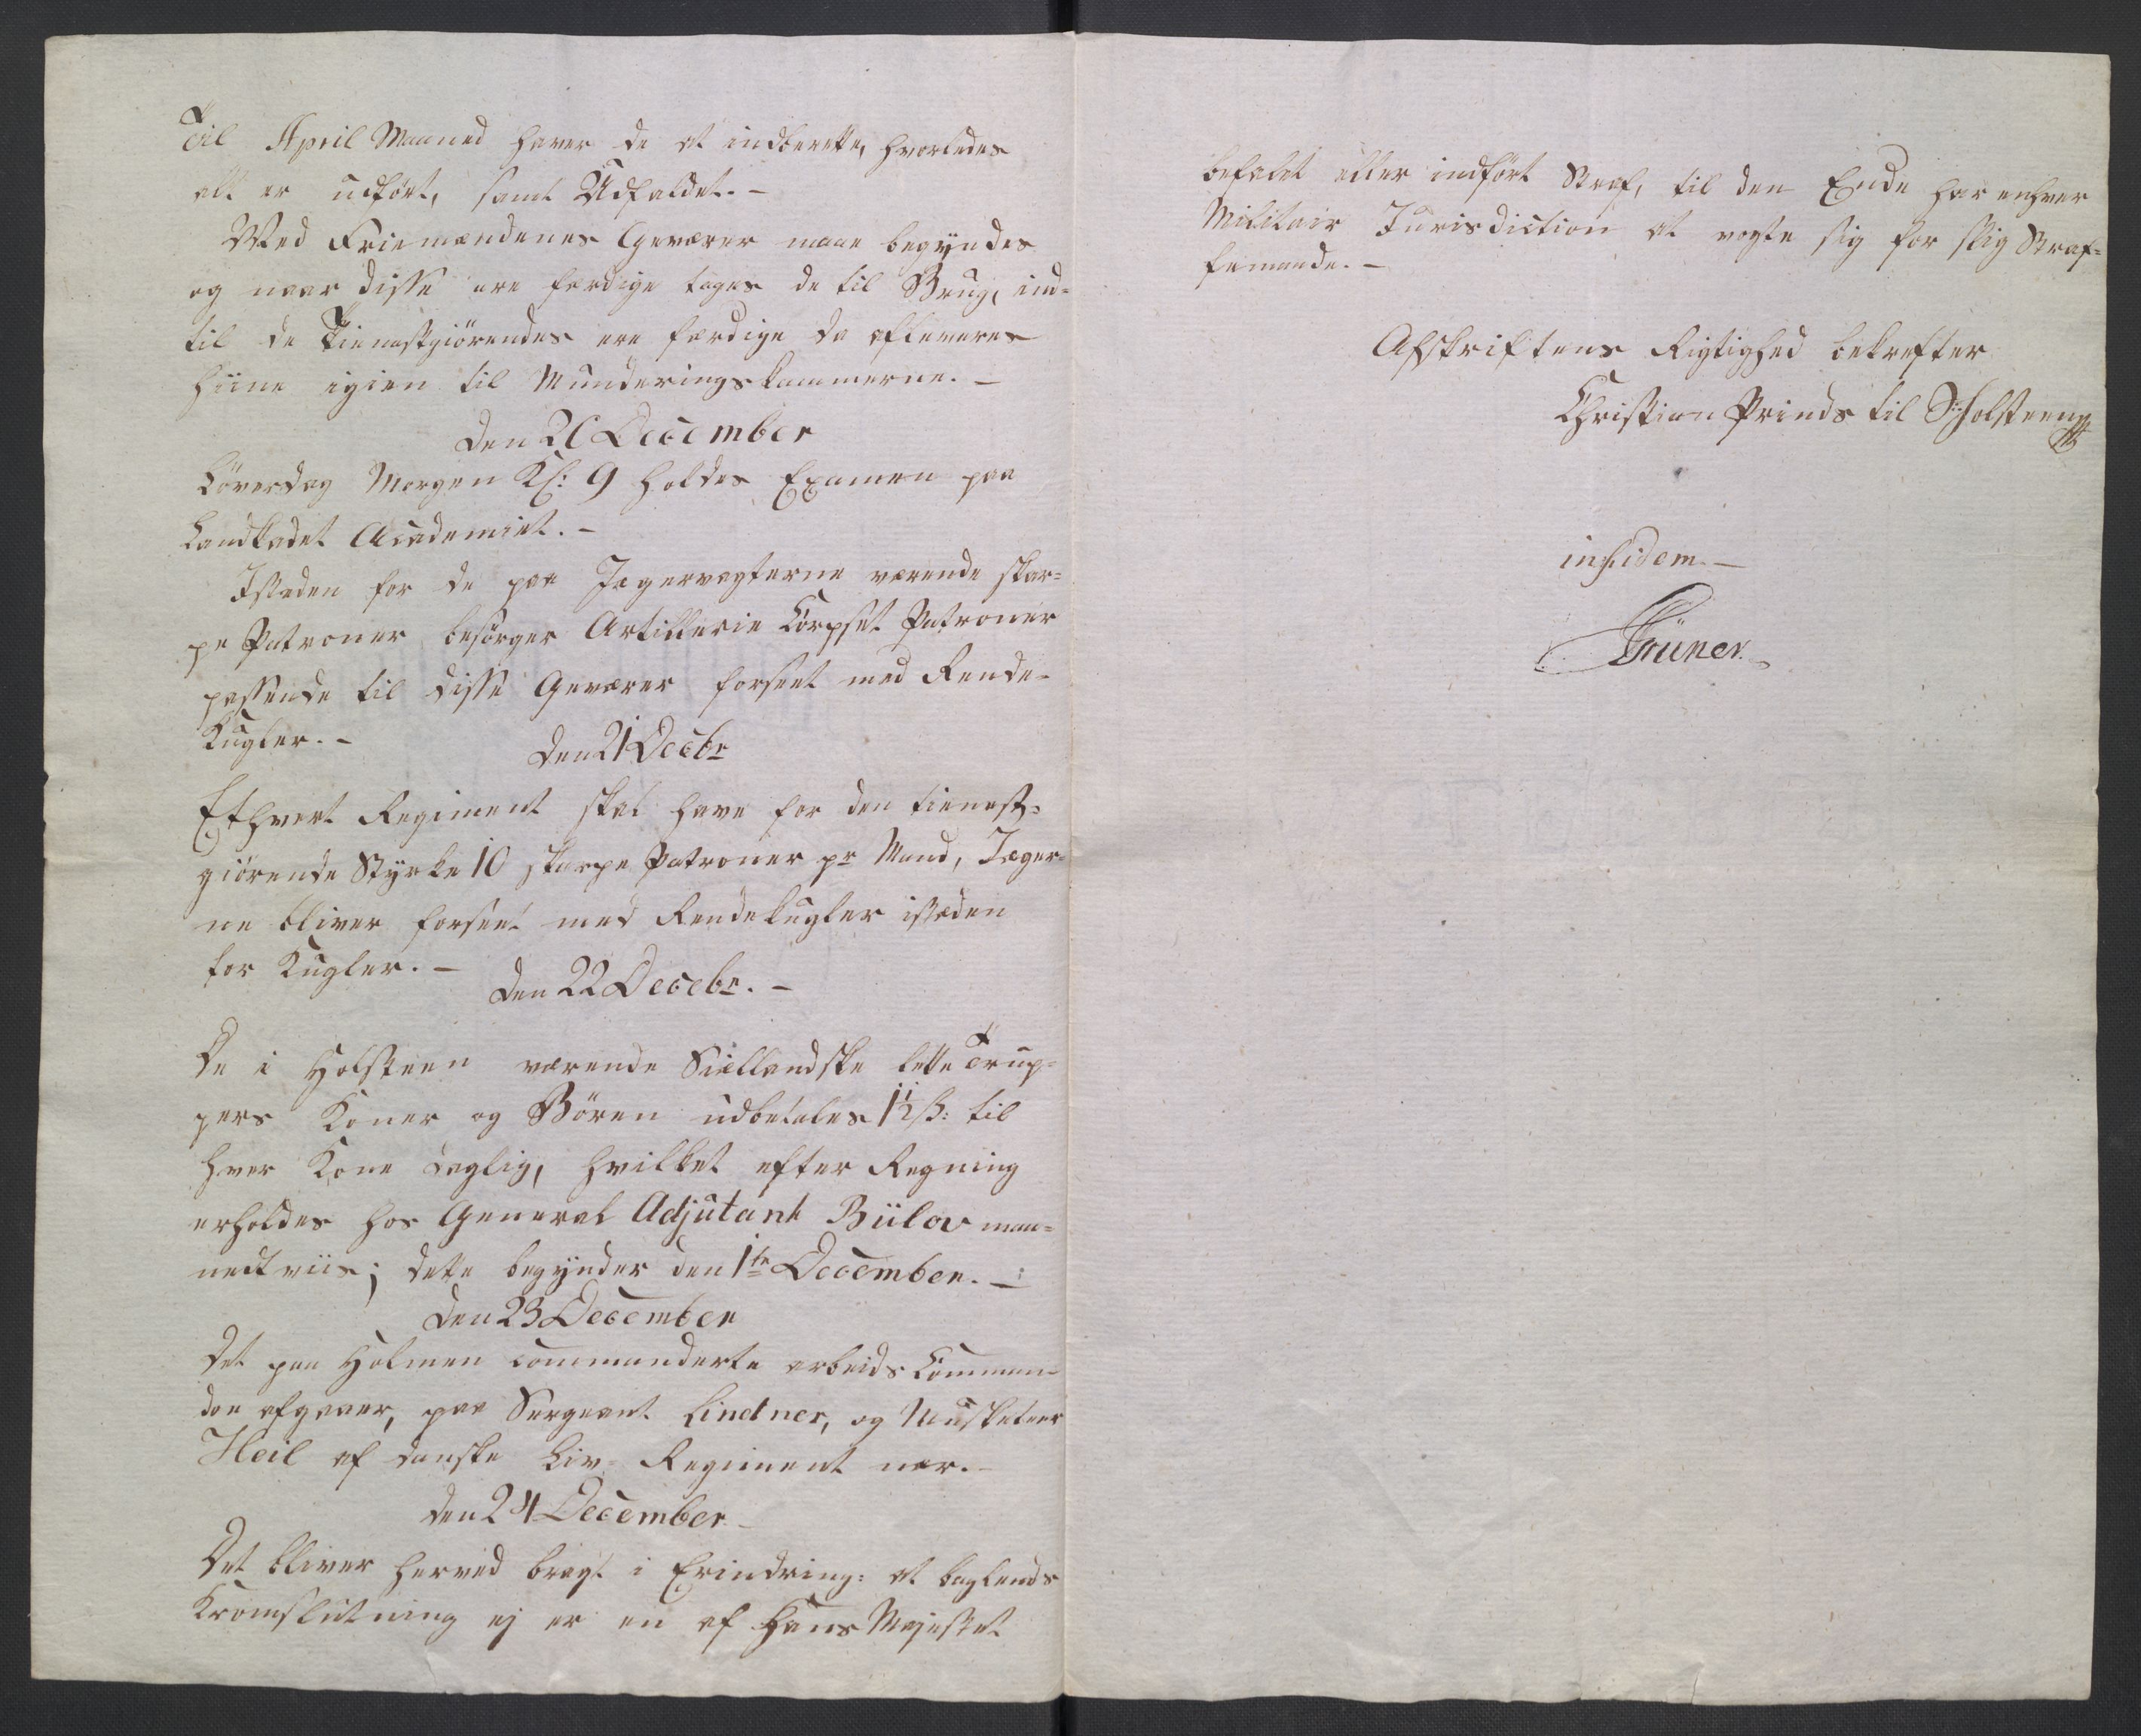 Til April Maaned haver de at indberette, hvorledes
alt er udført, samt Udfaldet. —
Med Friemændenes Geværer maae begyndes
og naar disse ere færdige tages de til Brug, ind-
til de Tienestgiørendes ere færdige da afleveres
hiine igien til Munderingskammerne. —
Den 20 December
Löverdag Morgen Kl: 9 holdes Examen paa
Landkadet Academiet. —
Isteden for de paa Jægervagterne værende skar-
pe Patroner besörger Artillerie Corpset Patroner
passende til disse Geværer forseet med Rende-
Kugler. —
Den 21 Decbr
Ethvert Regiment skal have for den tienest-
giörende Styrke 10 skarpe Patroner pr Mand, Jæger-
ne bliver forseet med Rendekugler isteden
for Kugler. —
Den 22 Decebr. —
De i Holsteen værende Siellandske lette Trup-
pers Koner og Bören udbetales 1½ ß: til
hver Kone daglig, hvilket efter Regning
erholdes hos General Adjutant Bülov maa-
nedtviis; dette begynder den 1te December. —
Den 23 December
Det paa Holmen commanderte arbeids Comman-
do afgaaer, paa Sergeant Lindner, og Musketeer
Heil af danske Liv-Regiment nær. —
Den 24 December —
Det bliver herved bragt i Erindring: at baglends
Kromslutning ej er en af Hans Majestet
befalet eller indfört Straf, til den Ende har enhver
Militair Jurisdiction at vogte sig for slig Straf-
femaade. —
Afskriftens Rigtighed bekrefter
Christian Prinds til S:Holsteen
in fidem. —
Grüner